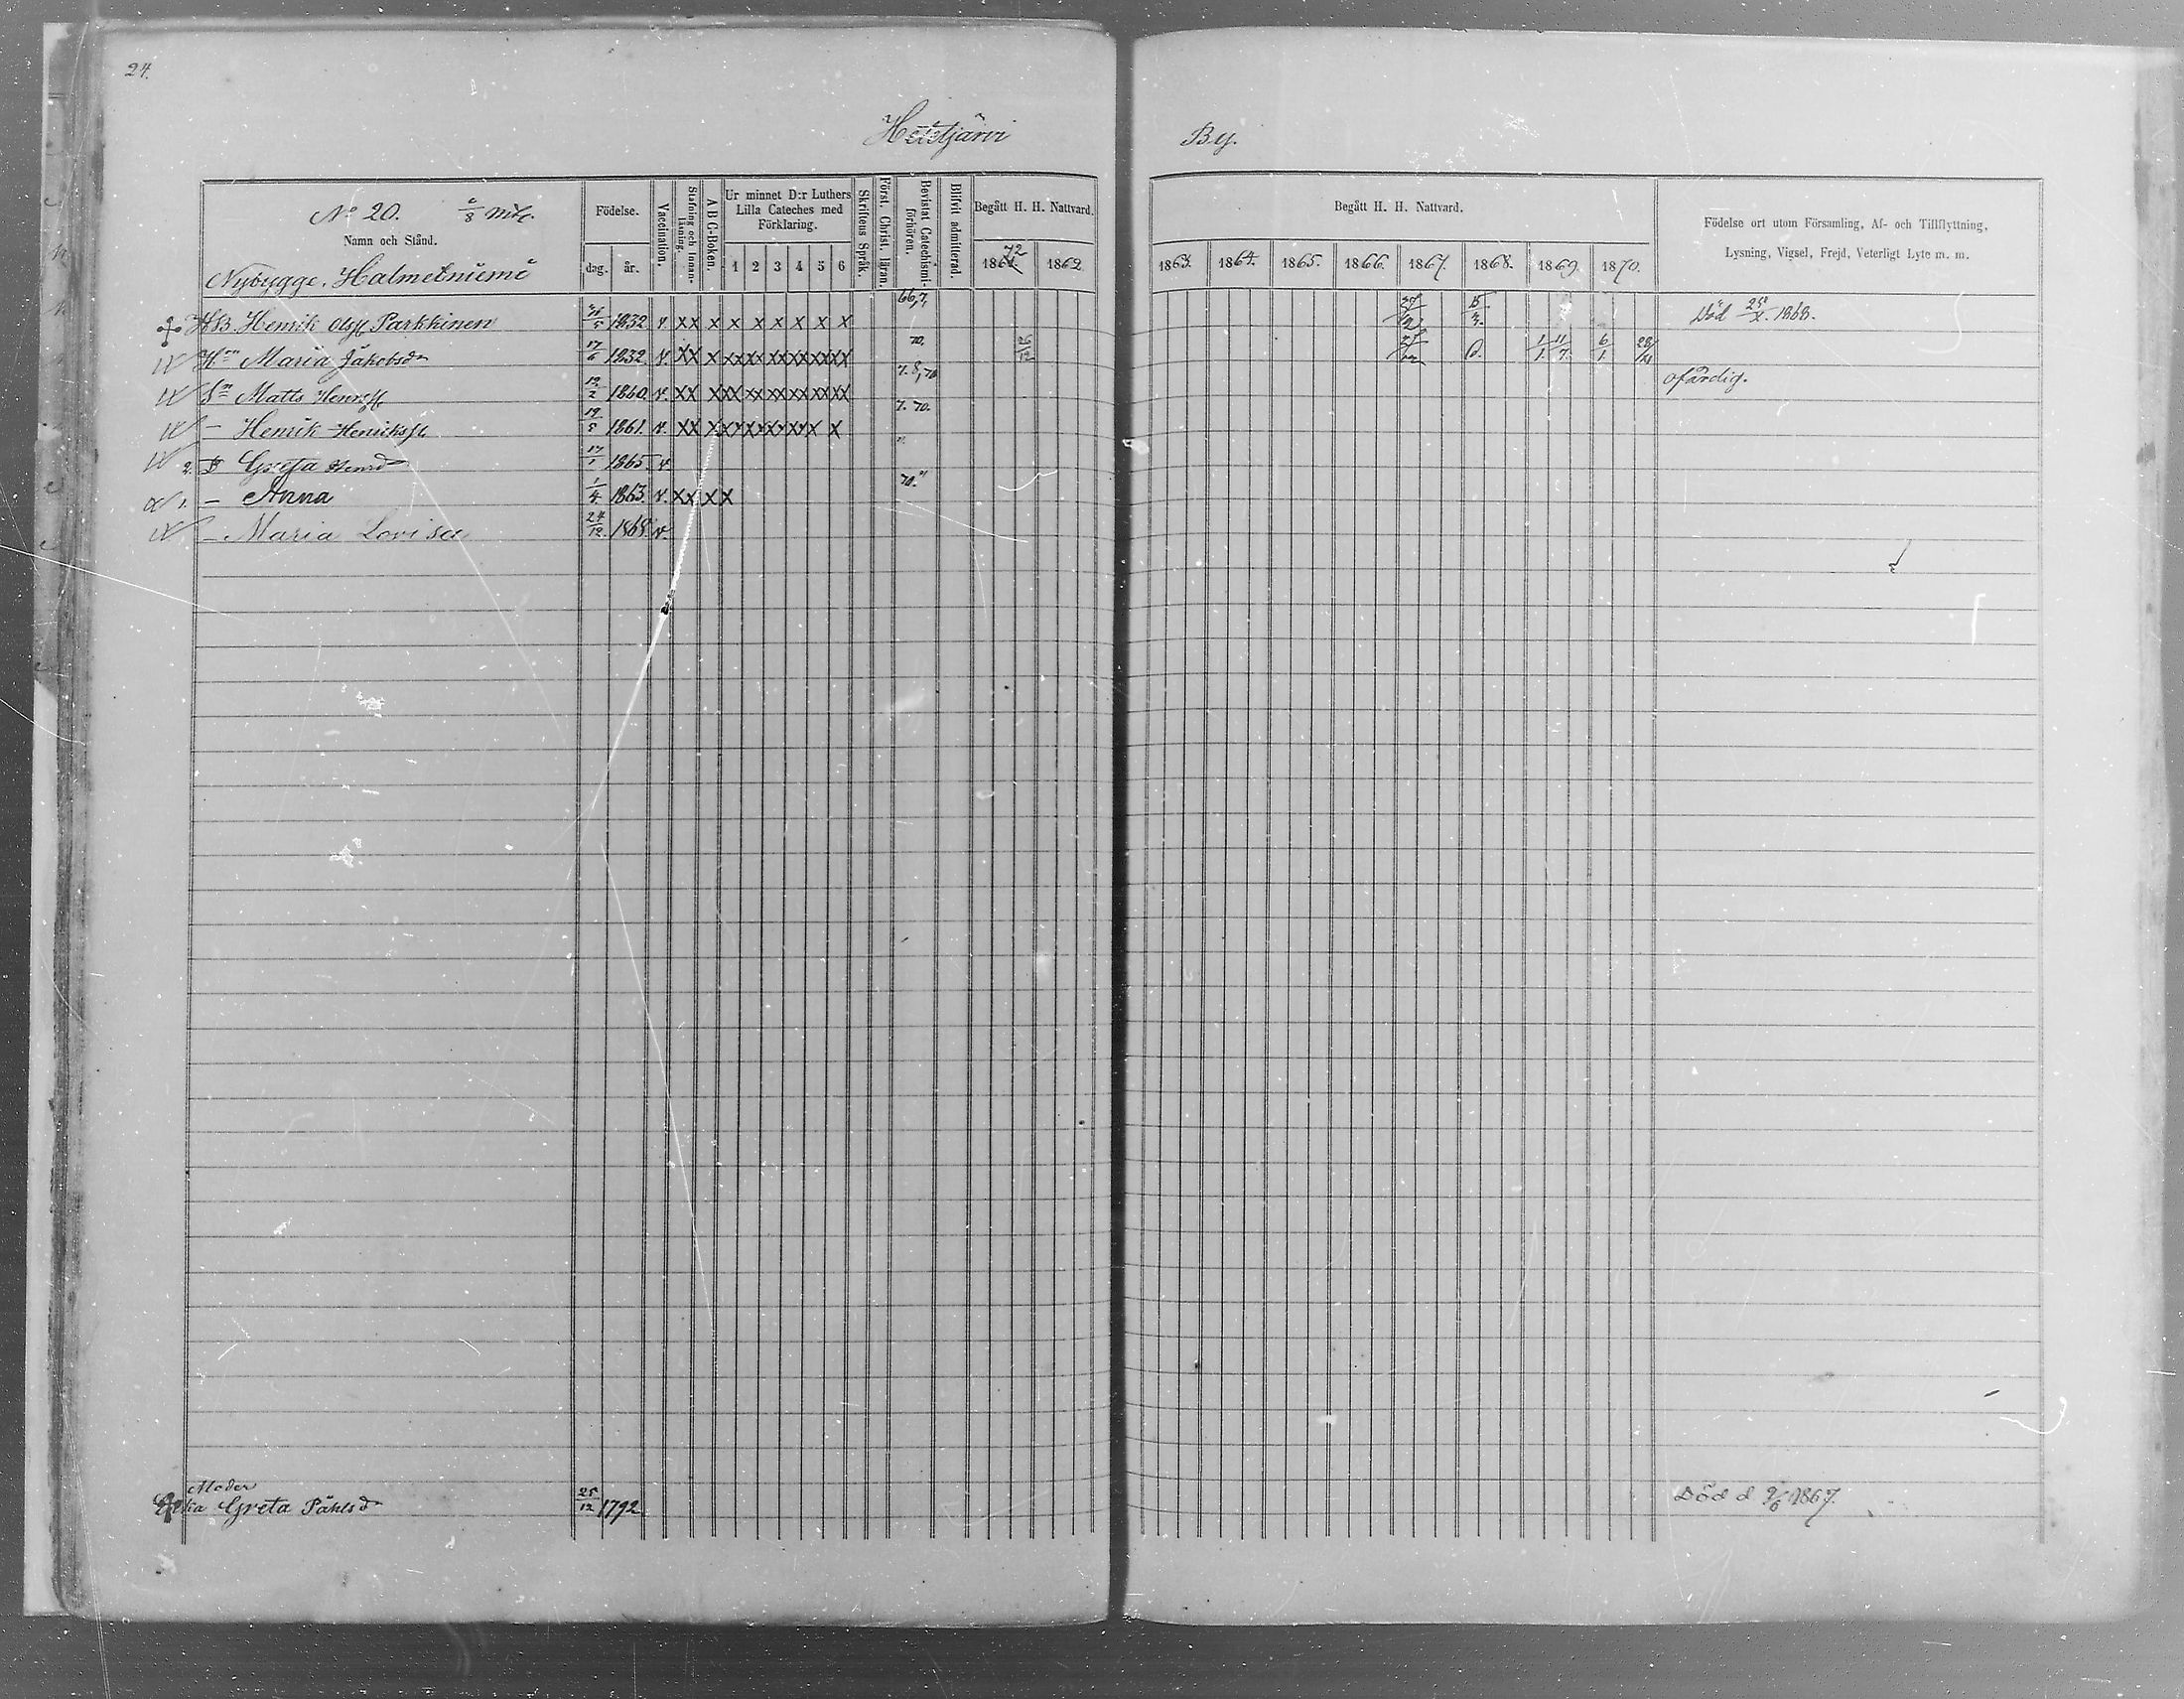 24.
Hetetjärvi By.
No 20. 2/8 mtl.
Namn och Stånd.
Födelse.
dag. år.
Vaccination.
Stafning och Innanläsning.
A B C-Boken.
Ur minnet D:r Luthers Lilla Cateches med Förklaring.
1 2 3 4 5 6
Skriftens Språk.
Först. Christ. läran.
Bevistat Catechismiförhören.
Blifvit admitterad.
Begått H. H. Nattvard.
72
1861. 1862
Begått H. H. Nattvard.
1863. 1864. 1865. 1866. 1867. 1868. 1869. 1870.
Födelse ort utom Församling, Af- och Tillflyttning,
Lysning, Vigsel, Frejd, Veterligt Lyte m. m.
Nybygge. Halmetniemi
HB Henrik Olsss Parkkinen 1832 v. x x x x x x x x x 66,7. Död 25/X. 1868.
Hnn Maria Jakobsdr 17/6 1832. v. xx x xx xx xx xx xx xx 70. 1/1 11/7 6/1
Sn Matts Henrss 12/2 1860. v. xx xxx xx xx xx xx xx 7.8,70 ofärdig.
— Henrik Henriksss 19/5 1861. v. xx x xx xx xx xx x x 7. 70.
2. D Greta Henrd 17/1 1865. v "
1. — Anna 1/4 1863. v. xx x x 70."
— Maria Lovisa 24/12 1868. v.
Moder
Enka Greta Påhlsdr 25/12 1792 Död d 9/6 1867.